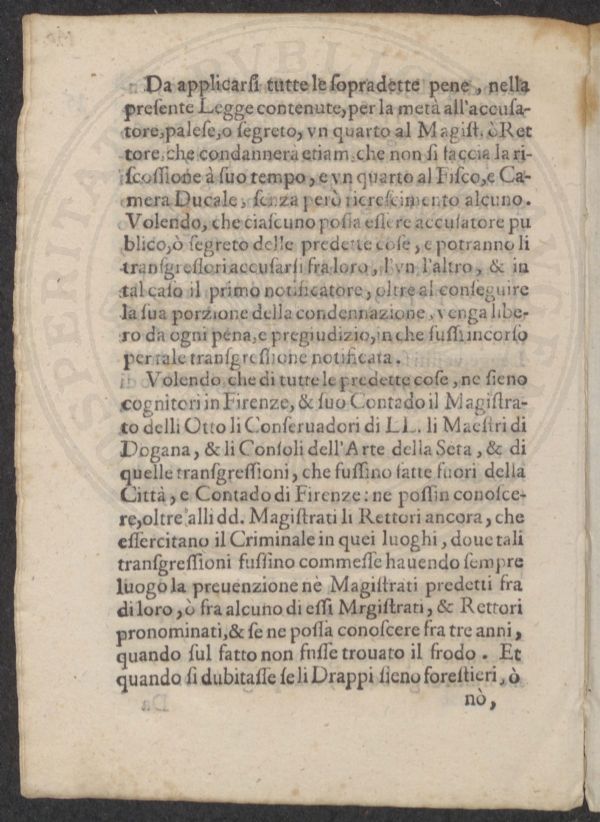 Da applicarſi tutte le ſopradette pene, nella
preſente Legge contenute, per la metà all'accuſa-
tore, paleſe, o ſegreto, vn quarto al Magiſt. ò Ret
tore, che condannerà etiam, che non ſi faccia la ri-
ſcoſſione à ſuo tempo, e vn quarto al Fiſco, e Ca-
mera Ducale, ſenza però ricreſcimento alcuno.
Volendo, che ciaſcuno poſſa eſſere accuſatore pu
blico, ò ſegreto delle predette coſe, e potranno li
tranſgreſſori accuſarſi fra loro, l'vn l'altro, & in
tal caſo il primo notificatore, oltre al conſeguire
la ſua porzione della condennazione, venga libe-
ro da ogni pena, e pregiudizio, in che fuſſi incorſo
per tale tranſgreſſione notificata.
Volendo che di tutte le predette coſe, ne ſieno
cognitori in Firenze, & ſuo Contado il Magiſtra-
to delli Otto li Conſeruadori di LL. li Maeſtri di
Dogana, & li Conſoli dell'Arte della Seta, & di
quelle tranſgreſſioni, che fuſſino fatte fuori della
Città, e Contado di Firenze: ne poſſin conoſce-
re, oltre alli dd. Magiſtrati li Rettori ancora, che
eſſercitano il Criminale in quei luoghi, doue tali
tranſgreſſioni fuſſino commeſſe hauendo ſempre
luogo la preuenzione nè Magiſtrati predetti fra
di loro, ò fra alcuno di eſſi Mrgiſtrati, & Rettori
pronominati, & ſe ne poſſa conoſcere fra tre anni,
quando ſul fatto non fuſſe trouato il frodo. Et
quando ſi dubitaſſe ſe li Drappi ſieno foreſtieri, ò
nò,